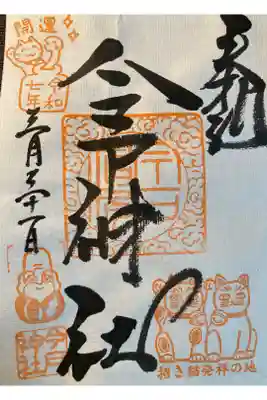 奉拝
今戸神社
開運
令和
七年
三月二十一日
今戸
神社
招き猫発祥の地